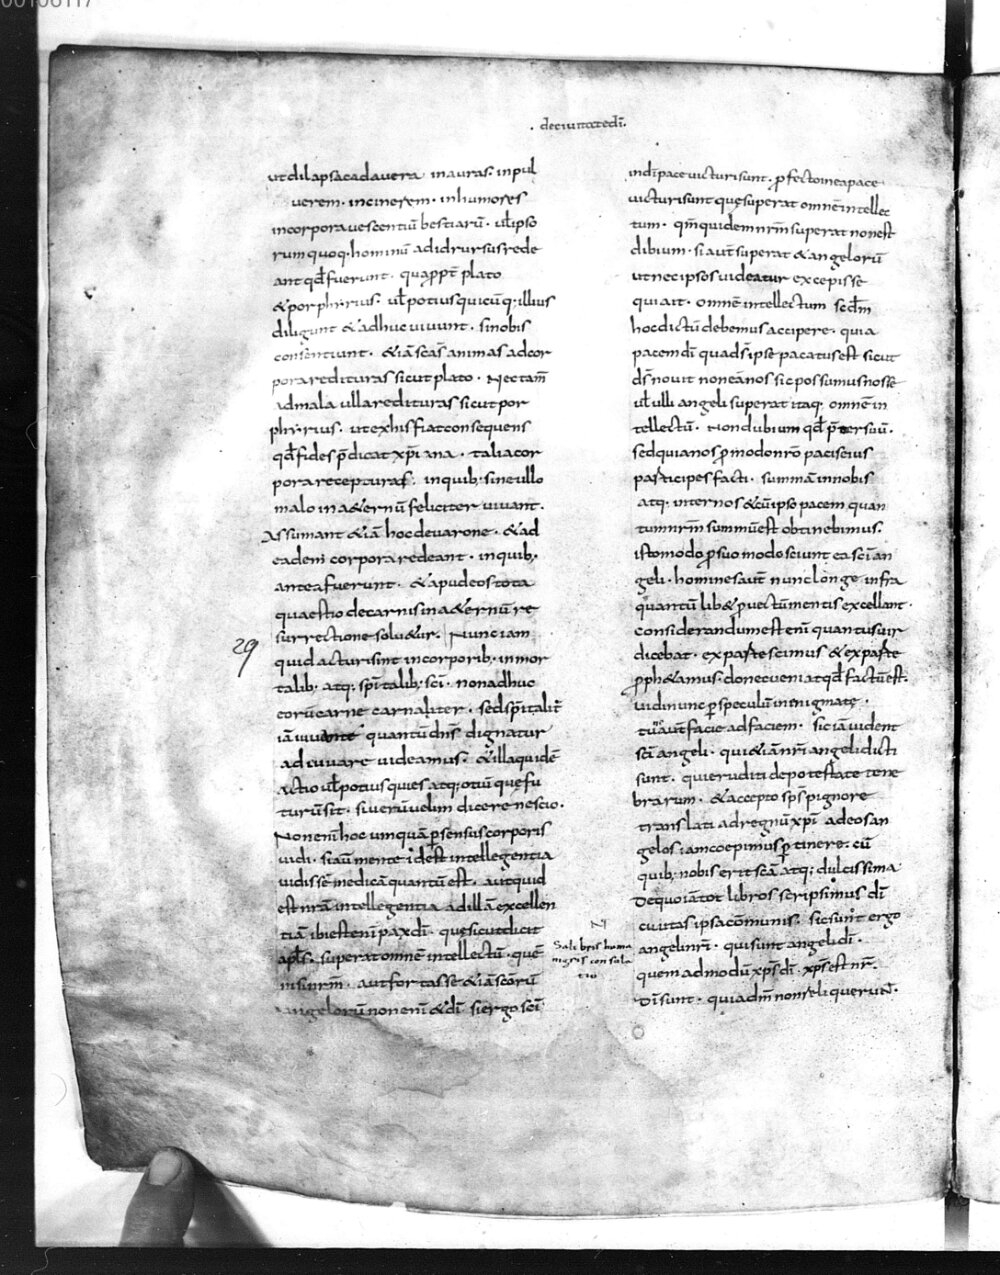 deciuitatedī.
utdilapsacadauera inauras· inpul
uerem· incinerem· inhumores
incorporauescentiū bestiarū· uĺipso
rumquoq· hominū adidrursusrede
antqđfuerunt· quapp̄t plato
&porphirius· uĺpotiusquicūq; illius
diligunt &adhucuiuunt· sinobis
consentiunt· &iāscās animas adcor
porarediturassicutplato· Nectam̄
admala ullaredituras sicutpor
phirius· utexhisfiatconsequens
qđfidesp̄dicat xp̄iana· taliacor
porarecepturas· inquib· sineullo
malo ina&ernū feliciter uiuant·
Assumant &iā hocdeuarone· &ad
eadem corpora redeant· inquib;
anteafuerunt· &apudeostota
quaestio decarnisina&ernū re
surrectione solu&ur· Nunciam
29
quidacturisint incorporib; inmor
talib· atq; sp̄italib; sc̄i· nonadhuc
eorūcarne carnaliter· sedsp̄italit̄
iā uiuente quantūdn̄s dignatur
adiuuare uideamus· &illaquidē
actio uĺpotiusquies atq; otiū quefu
turūsit· siuerūuelim dicere nescio·
Nonenīhoc umquāp̱sensuscorporis
uidi· siaūmente idest intellegentia
uidissēmedicāquantūest· autquid
estnrāintellegentia adillāexcellen
tiā ibiestenīpaxdī· quesicutdicit
apĺs· superatomnē intellectū· quē
nisinrm̄· autfortasse &iāscōrū
angelorūnonenī &dī siergosc̄i
indīpaceuicturisunt· p̱fectoineapace
uicturisunt quęsuperat omnēintellec
tum· qm̄quidemnrm̄superat nonest
dibium· siaut̄superat &angelorū
utnecipsosuideatur excepisse
quiait· omnē intellectum scđm
hocdictūdebemusaccipere· quia
pacemdī quads̄ipse pacatusest sicut
ds̄nouit noneānossicpossumusnosse
uĺulli angeli superat itaq; omnē in
tellectū· Nondubium qđp̄ter suū·
sedquianosp̱modonr̄o paciseius
participes facti· summāinnobis
atq· internos &cūipso pacem quan
tumnrm̄ summūest obtinebimus·
istomodo p̱suomodo sciunt eascīan
geli· hominesaut̄ nunclonge infra
quantūlib&p̱uectūmentis excellant·
considerandumestenī quantusuir
dicebat· exparte scimus &exparte
p̱ph&amus· donecueniatqđfactūest·
uidmuncp̱speculūinenigmate·
tū aut̄facie adfaciem· siciāuident
scī angeli· qui&iānr̄i angelidicti
sunt· quieruditi depotestate tene
brarum· &accepto sp̄s pignore
translati adregnūxpī adeosan
gelos iamcoepimusp̱tinere· cū
quib; nobiseritscā atq; dulcissima
Dequoiātot libros scripsimus dī
ciuitasipsacōmunis· sicsunt ergo
angelinr̄i· quisunt angelidī·
quemadmodūxp̄sdī· xp̄sestnr̄·
Dīsunt· quiadm̄ nonreliquerunt·
N
Salibris huma
nigris consola
tio